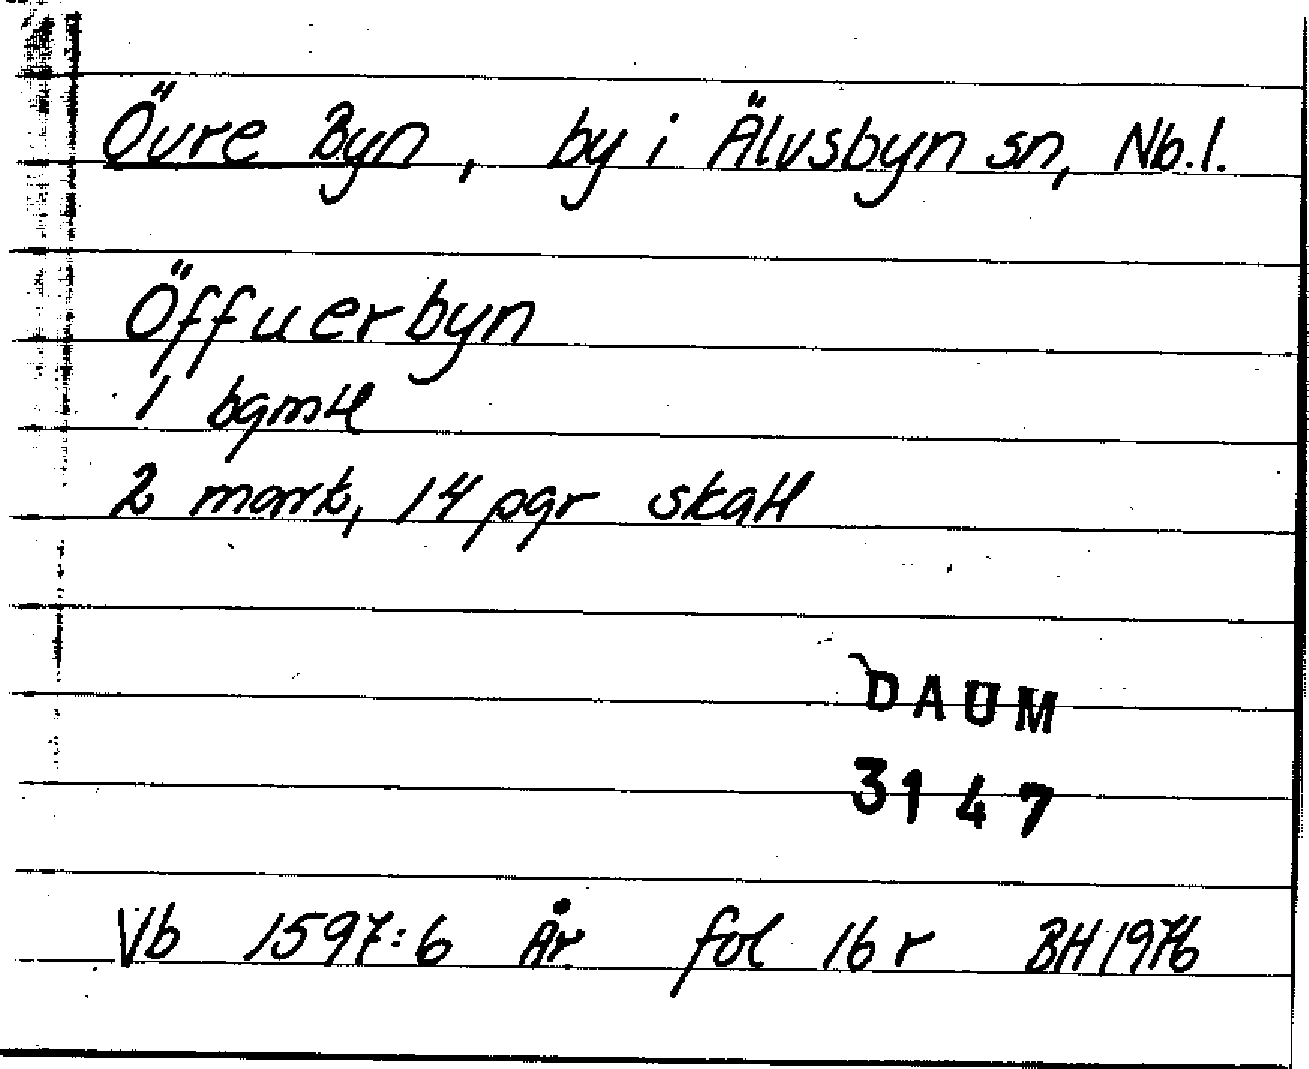 Övre Byn, by i Älvsbyn sn, Nb.l.
Öffuerbyn
1 bgmtl
2 mark, 14 pgr skatt
DAUM
3147
Vb 1597:6 År fol 16 r BH 1976